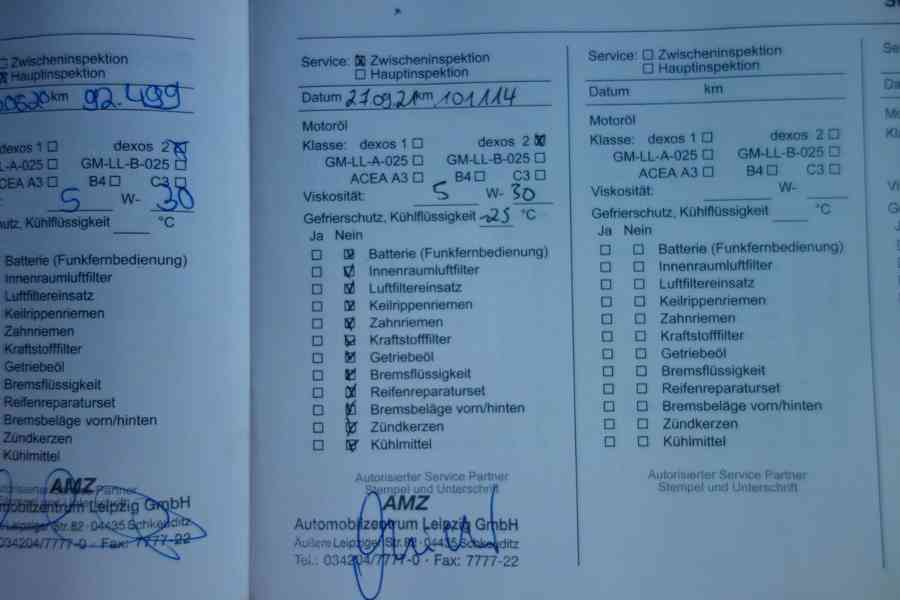 Zwischeninspektion
Hauptinspektion
km 92.499
dexos 1 dexos 2
LL-A-025 GM-LL-B-025
ACEA A3 B4 C3
5 W- 30
utz, Kühlflüssigkeit °C
Batterie (Funkfernbedienung)
Innenraumluftfilter
Luftfiltereinsatz
Keilrippenriemen
Zahnriemen
Kraftstofffilter
Getriebeöl
Bremsflüssigkeit
Reifenreparaturset
Bremsbeläge vorn/hinten
Zündkerzen
Kühlmittel
AMZ Partner
mobilzentrum Leipzig GmbH
Leipziger Str. 82 · 04435 Schkeuditz
034204/7777-0 · Fax: 7777-22
Service: Zwischeninspektion
Hauptinspektion
Datum 27.09.21 km 101114
Motoröl
Klasse: dexos 1 dexos 2
GM-LL-A-025 GM-LL-B-025
ACEA A3 B4 C3
Viskosität: 5 W- 30
Gefrierschutz, Kühlflüssigkeit -25 °C
Ja Nein
Batterie (Funkfernbedienung)
Innenraumluftfilter
Luftfiltereinsatz
Keilrippenriemen
Zahnriemen
Kraftstofffilter
Getriebeöl
Bremsflüssigkeit
Reifenreparaturset
Bremsbeläge vorn/hinten
Zündkerzen
Kühlmittel
Autorisierter Service Partner
Stempel und Unterschrift
AMZ
Automobilzentrum Leipzig GmbH
Äußere Leipziger Str. 82 · 04435 Schkeuditz
Tel.: 034204/7777-0 · Fax: 7777-22
Service: Zwischeninspektion
Hauptinspektion
Datum km
Motoröl
Klasse: dexos 1 dexos 2
GM-LL-A-025 GM-LL-B-025
ACEA A3 B4 C3
Viskosität: W-
Gefrierschutz, Kühlflüssigkeit °C
Ja Nein
Batterie (Funkfernbedienung)
Innenraumluftfilter
Luftfiltereinsatz
Keilrippenriemen
Zahnriemen
Kraftstofffilter
Getriebeöl
Bremsflüssigkeit
Reifenreparaturset
Bremsbeläge vorn/hinten
Zündkerzen
Kühlmittel
Autorisierter Service Partner
Stempel und Unterschrift